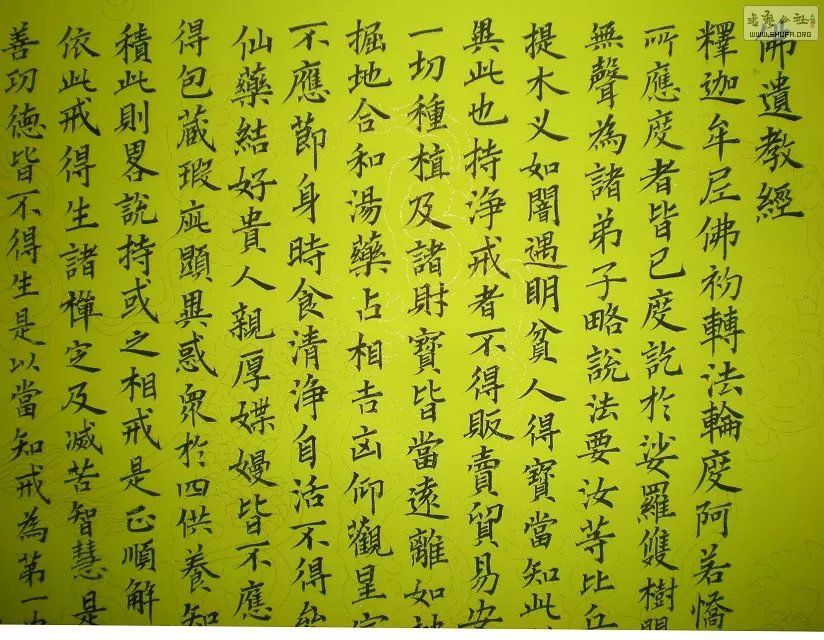 佛遺教經
釋迦牟尼佛初轉法輪度阿若憍
所應度者皆已度訖於娑羅雙樹間
無聲為諸弟子略說法要汝等比丘
提木叉如闇遇明貧人得寶當知此
異此也持淨戒者不得販賣貿易安
一切種植及諸財寶皆當遠離如
掘地合和湯藥占相吉凶仰觀星
不應節身時食清淨自活不得
仙藥結好貴人親厚媟嫚皆不應
得包藏瑕疵顯異惑眾於四供養知
積此則畧說持或之相戒是正順解
依此戒得生諸禪定及滅苦智慧是
善功德皆不得生是以當知戒為第一
WWW.SHUFA.ORG